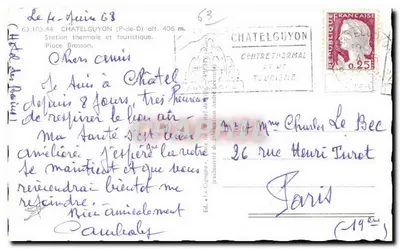 Le 4 Juin 63
63
63.103.44 CHATELGUYON (P.-de-D) alt. 406 m.
Station thermale et touristique.
Place Brosson.
Chers amis
Je suis à Chatel
depuis 8 jours, très heureux
de respirer le bon air
Ma santé s'est
améliorée j'espère la votre
se maintient et que vous
reviendrez bientôt me
rejoindre.
Bien amicalement
CHATELGUYON
CENTRE THERMAL
ET DE
TOURISME
REPUBLIQUE FRANÇAISE
0,25
Mr et Mme Charles Le Bec
26 rue Henri Turot
Paris
(19ème)